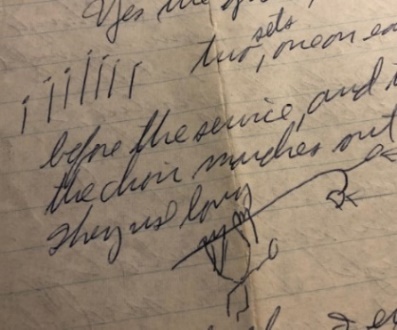 Yes the
two sets, one on ea
before the service, and
the choir marches out
They use long